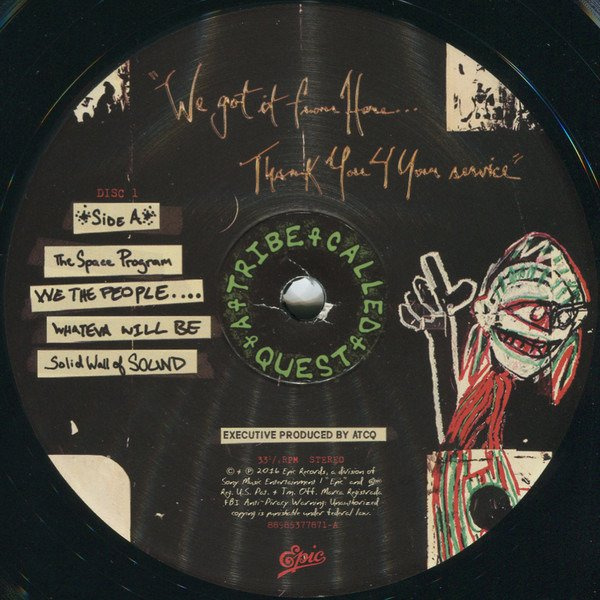 "We got it from Here...
Thank You 4 Your service"
DISC 1
*SIDE A*
The Space Program
WE THE PEOPLE....
WHATEVA WILL BE
Solid Wall of SOUND
A TRIBE CALLED QUEST
EXECUTIVE PRODUCED BY ATCQ
33⅓ RPM STEREO
© + ℗ 2016 Epic Records, a division of
Sony Music Entertainment / "Epic" and
Reg. U.S. Pat. + Tm. Off. Marca Registrada
FBI Anti-Piracy Warning: Unauthorized
copying is punishable under federal law.
88985377871-A
Epic